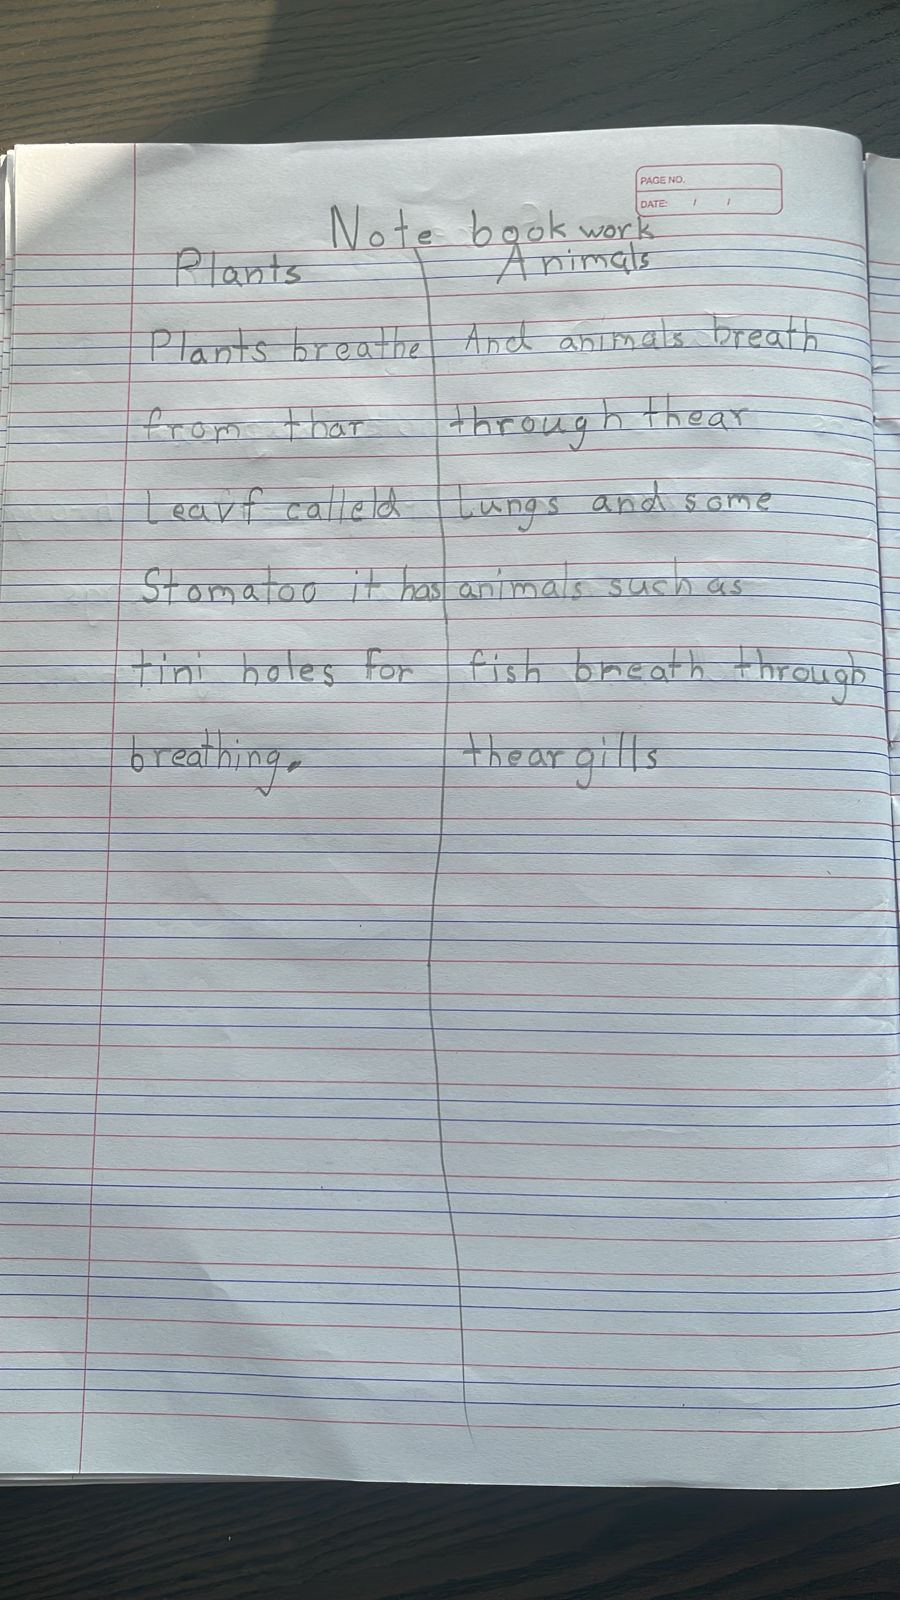 PAGE NO.
DATE: / /
Note book work
Plants
Plants breathe
from thar
Leavf calleld
Stomatoo it has
tini holes for
breathing.
Animals
And animals breath
through thear
Lungs and some
animals such as
fish breath through
thear gills